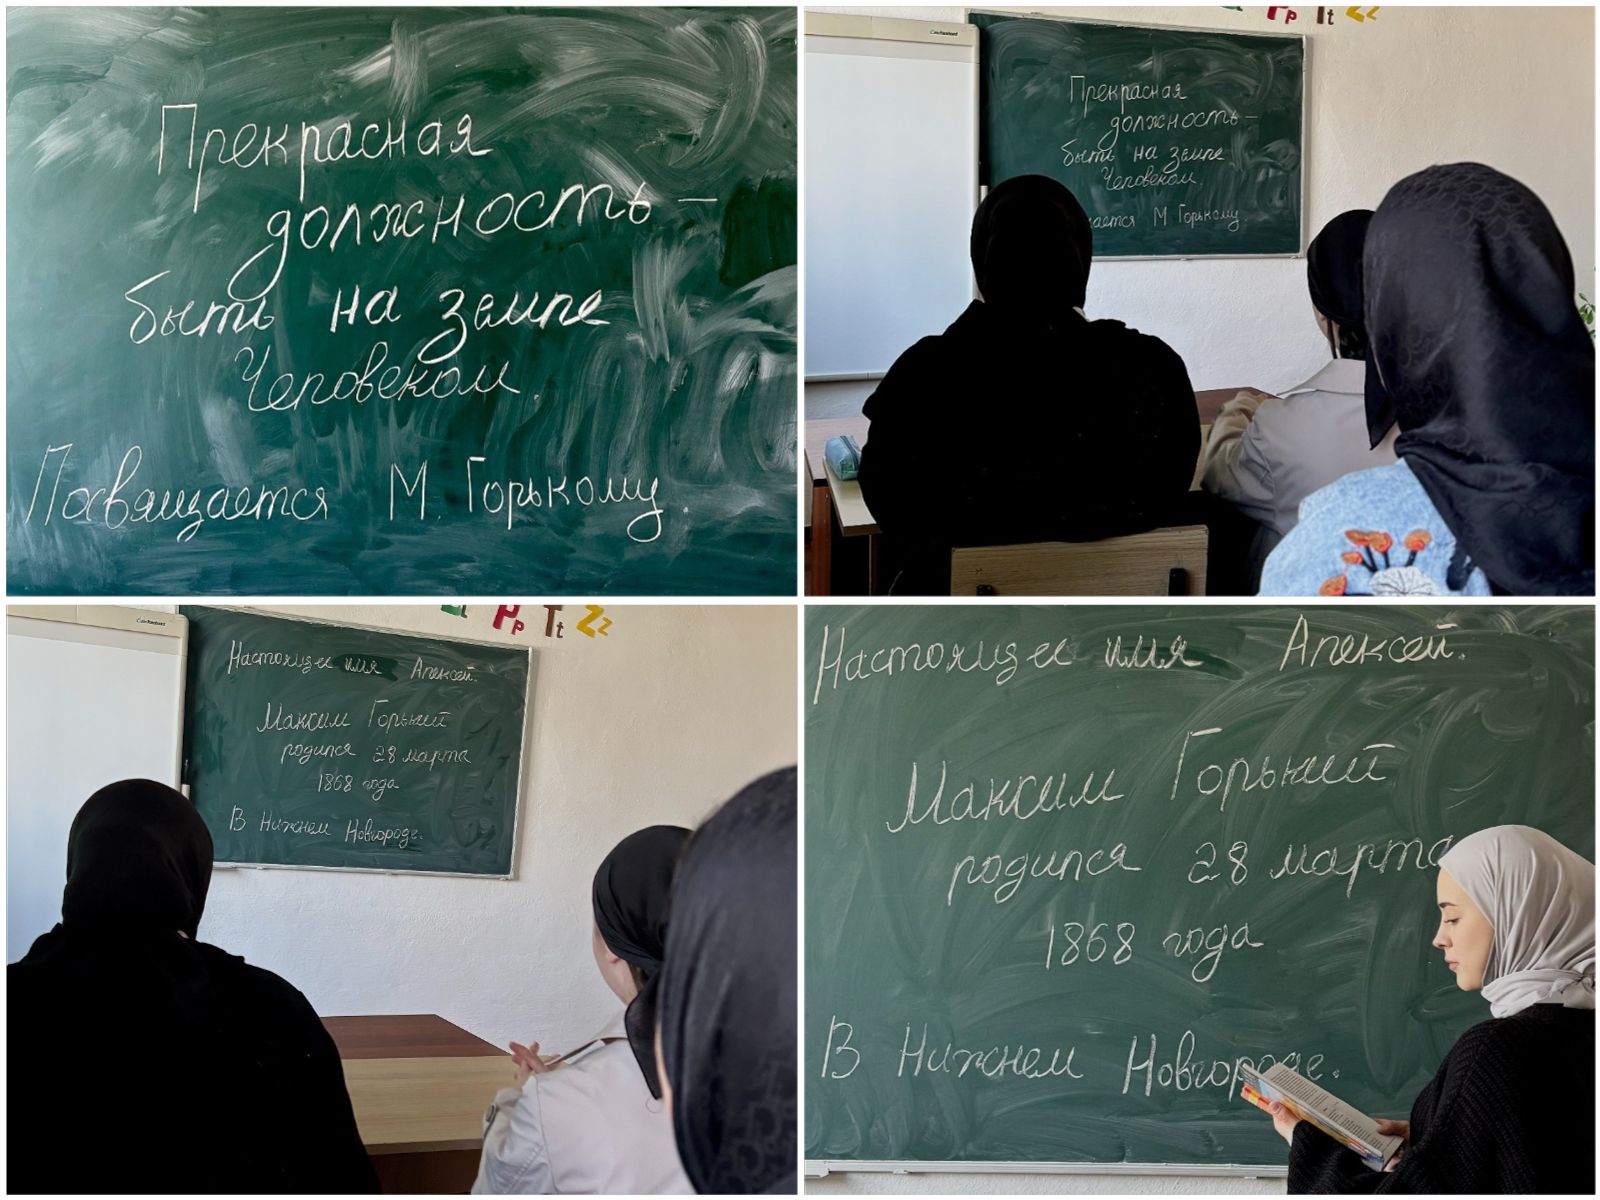 Прекрасная
должность —
быть на земле
Человеком.
Посвящается М. Горькому.
Pp Tt Zz
Прекрасная
должность —
быть на земле
Человеком.
ается М Горькому.
Pp Tt Zz
Настоящее имя Алексей.
Максим Горький
родился 28 марта
1868 года
В Нижнем Новгороде.
Настоящее имя Алексей.
Максим Горький
родился 28 марта
1868 года
В Нижнем Новгороде.